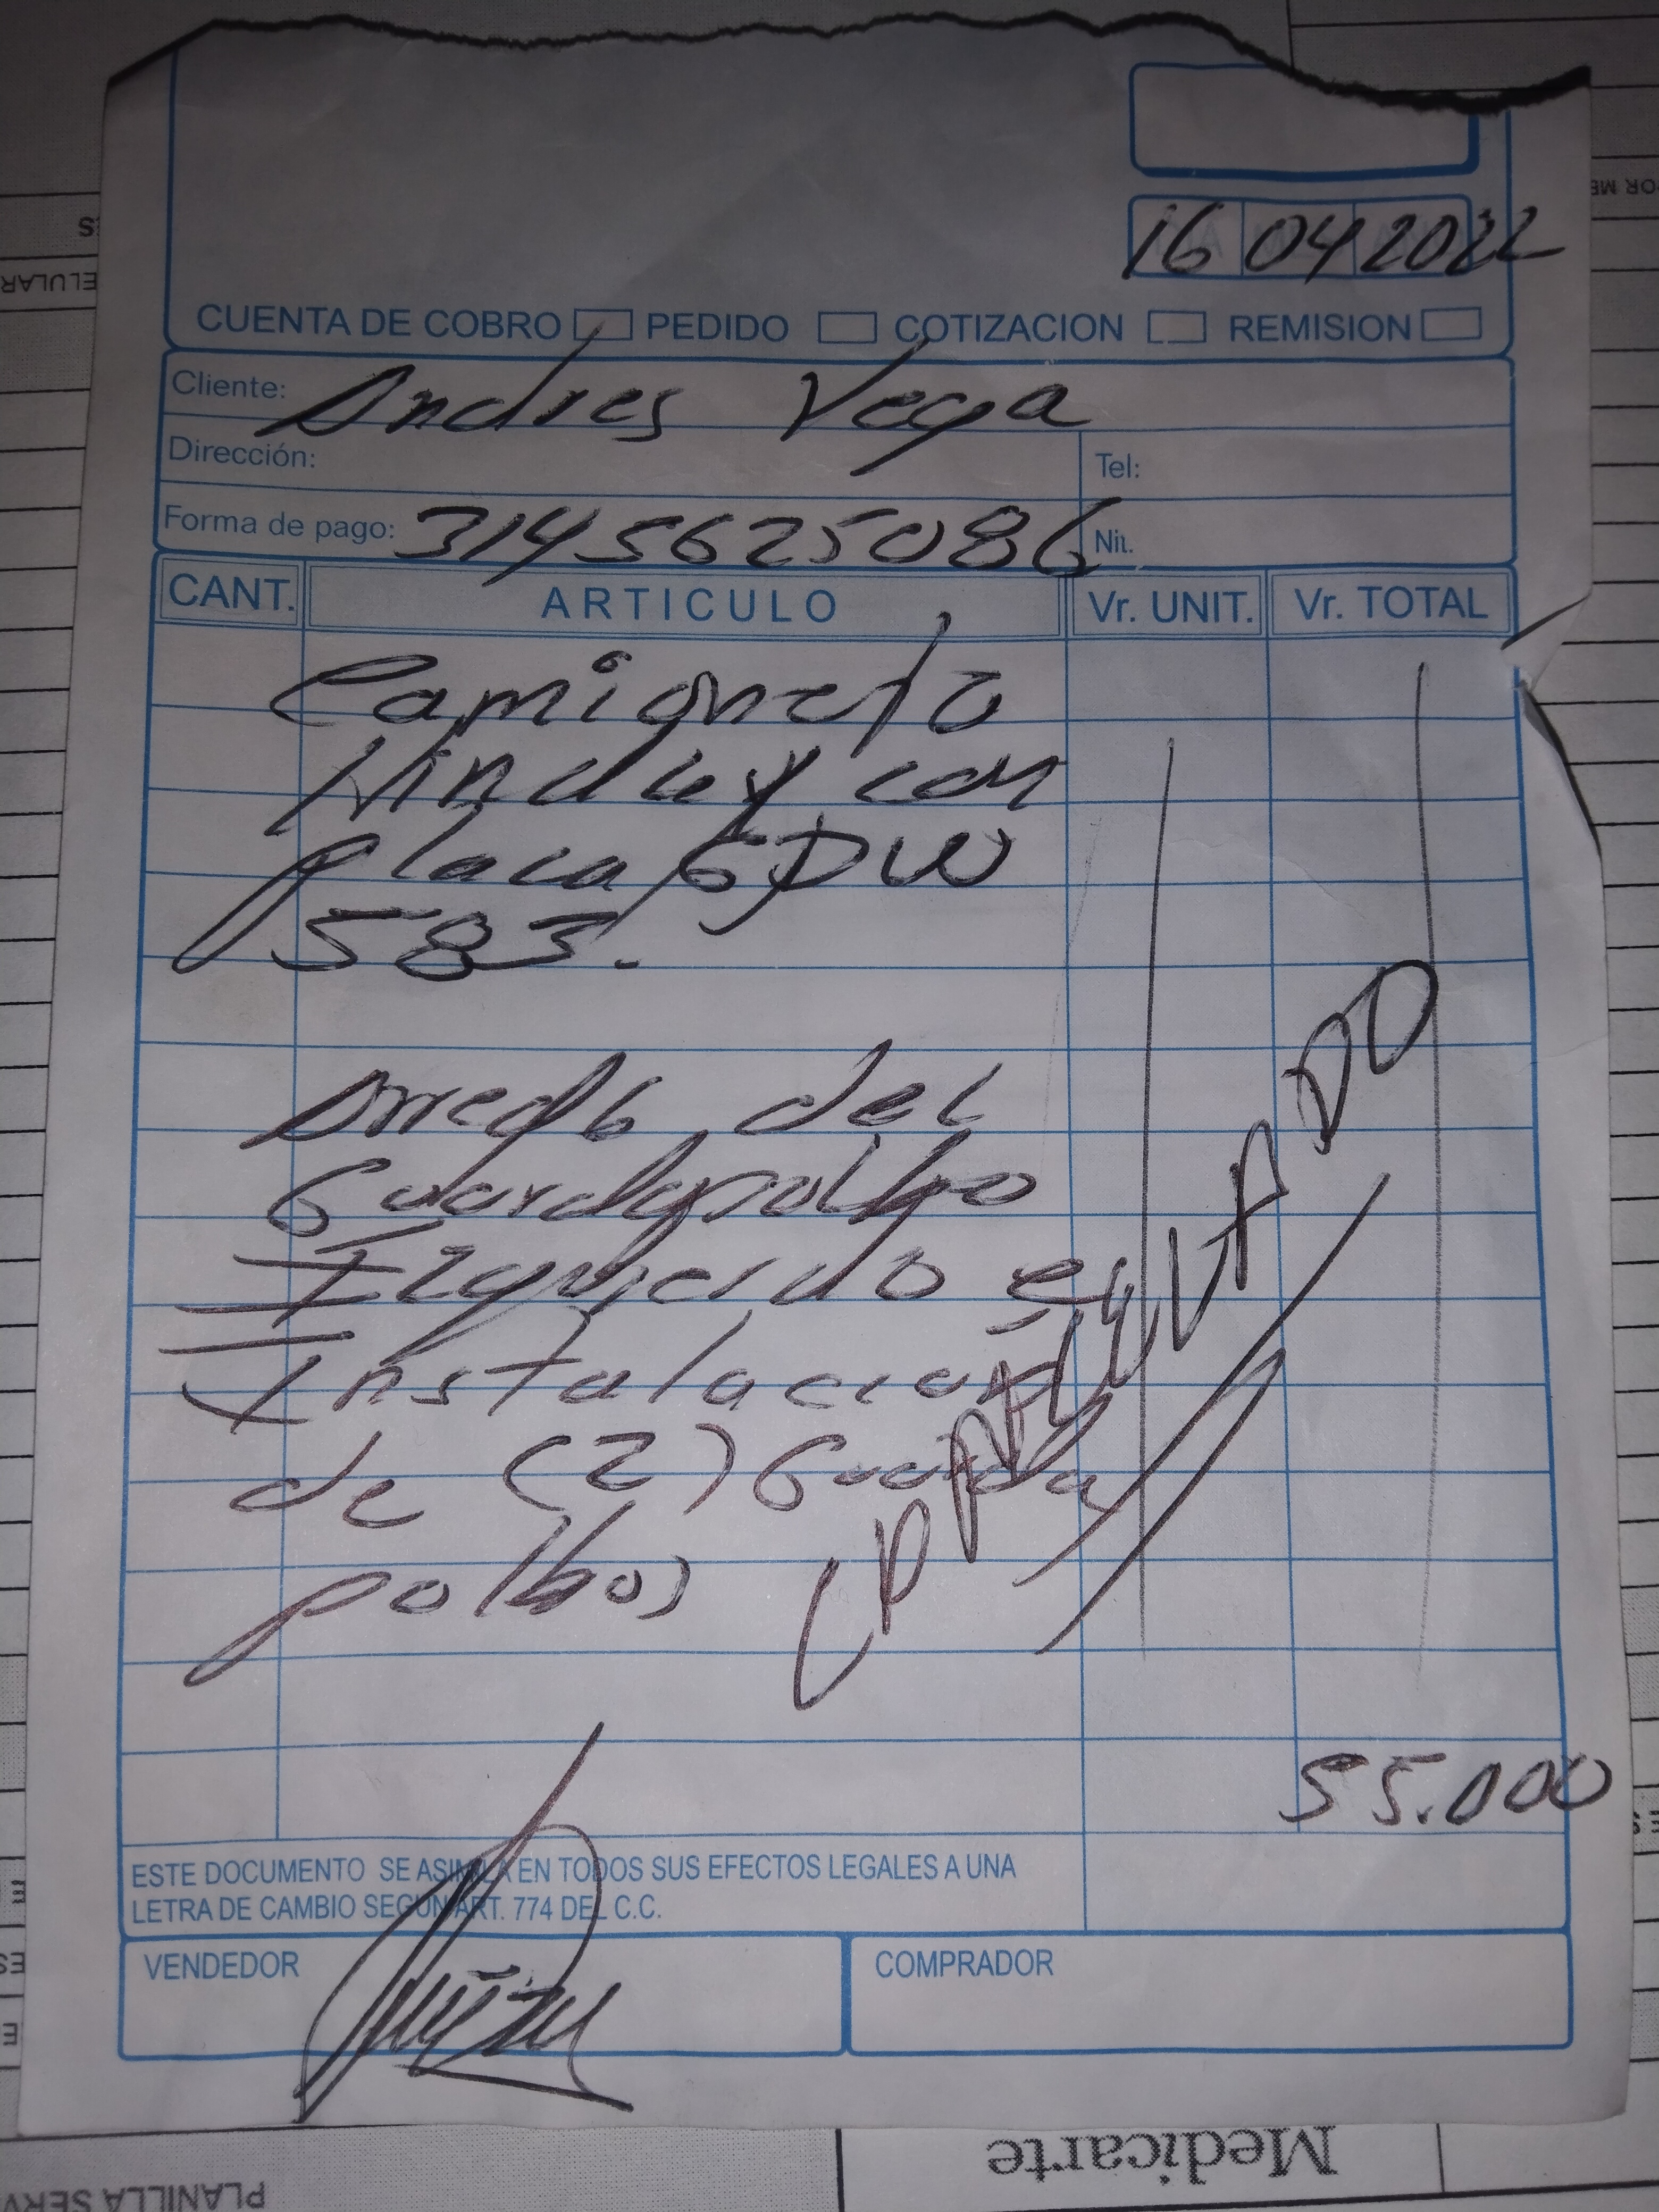 16 04 2022
CUENTA DE COBRO PEDIDO COTIZACION REMISION
Cliente: Andres Vega
Dirección: Tel:
Forma de pago: 3145625086 Nit.
CANT. ARTICULO Vr. UNIT. Vr. TOTAL
Camioneta
con
placa GDW
583.
del
Guardapolbo
Izquierdo e
Instalacion
de (2) Guarda
polbos
55.000
ESTE DOCUMENTO SE ASIMILA EN TODOS SUS EFECTOS LEGALES A UNA
LETRA DE CAMBIO SEGUN ART. 774 DEL C.C.
VENDEDOR COMPRADOR
Medicarte
PLANILLA SERV